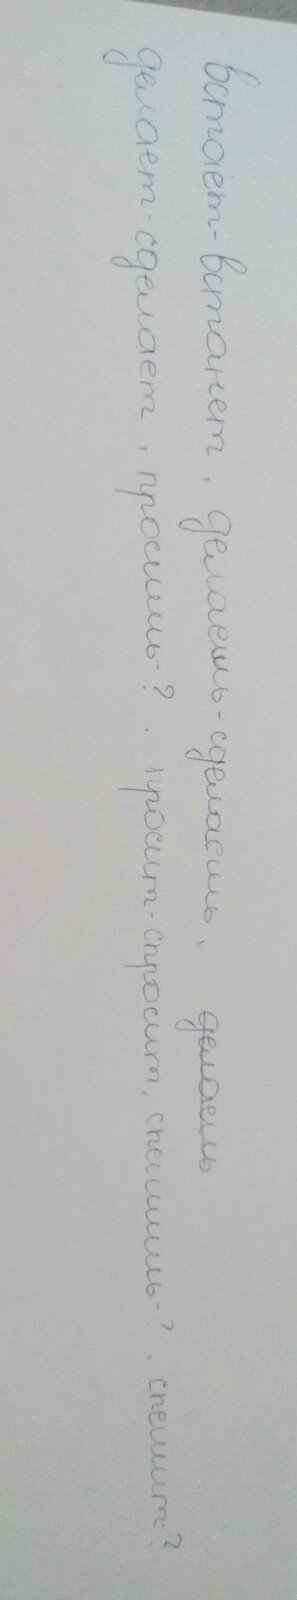 встаёт-встанет, делаешь-сделаешь, делаешь
делает-сделает, просишь-?, просит-спросит, спешишь-?, спешит-?